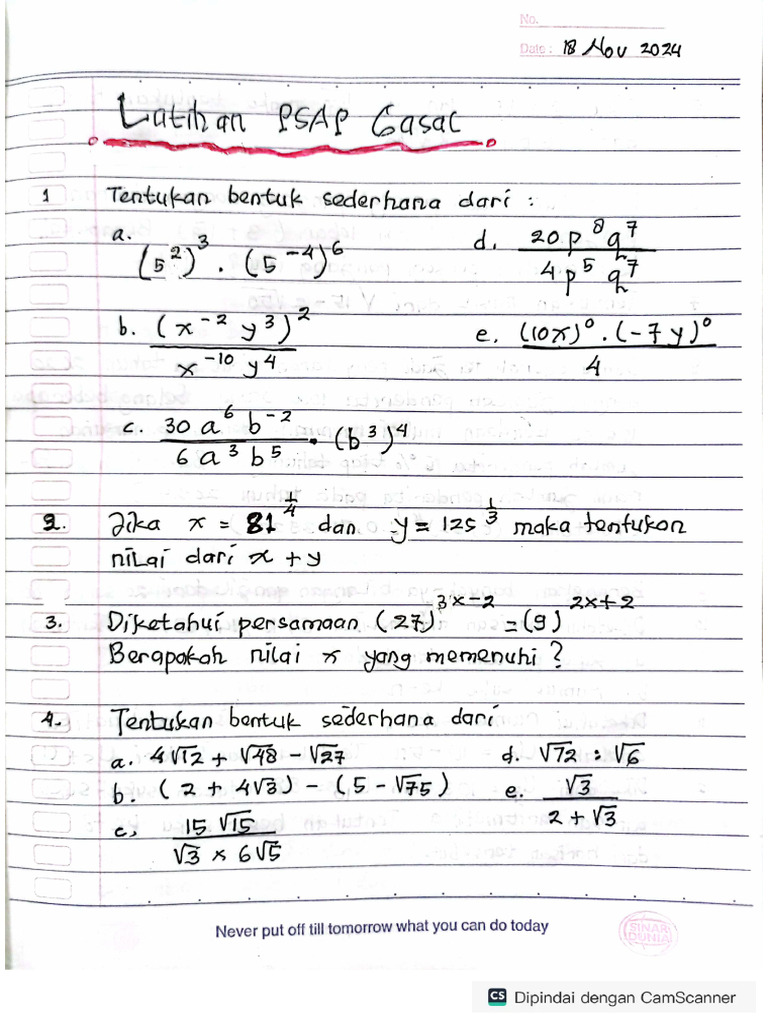 No.
Date : 18 Nov 2024
Latihan PSAP Gasal
1 Tentukan bentuk sederhana dari :
a. (5²)³ . (5⁻⁴)⁶
d. 20 p⁸ q⁷ / 4 p⁵ q⁷
b. (x⁻² y³)² / x⁻¹⁰ y⁴
e. (10x)⁰ . (-7y)⁰ / 4
c. 30 a⁶ b⁻² / 6 a³ b⁵ . (b³)⁴
2. Jika x = 81^(1/4) dan y = 125^(1/3) maka tentukan
nilai dari x + y
3. Diketahui persamaan (27)^(3x-2) = (9)^(2x+2)
Berapakah nilai x yang memenuhi ?
4. Tentukan bentuk sederhana dari
a. 4√12 + √48 - √27
d. √72 : √6
b. (2 + 4√3) - (5 - √75)
e. √3 / 2 + √3
c, 15 √15 / √3 × 6√5
Never put off till tomorrow what you can do today
SINAR DUNIA
CS Dipindai dengan CamScanner